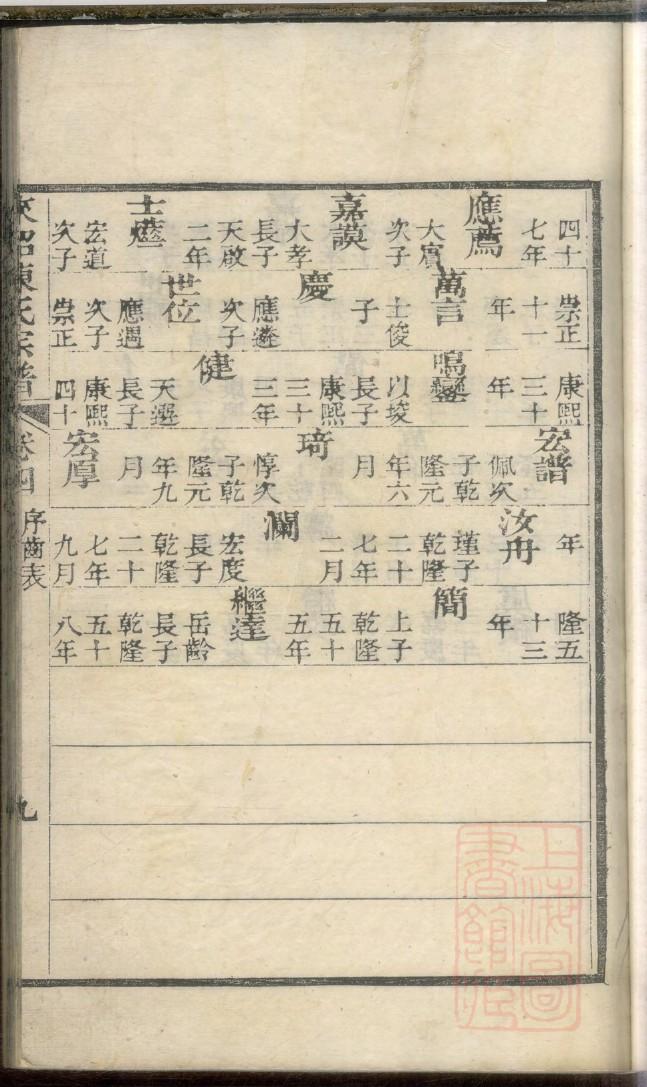 四十
七年
應薦
大賓
次子
嘉謨
大孝
長子
天啟
二年
宏道
次子
崇正
十一
年
萬言
士俊
子
慶
應遴
次子
世位
應遇
次子
崇正
康熙
三十
年
鳴鑾
以埈
長子
康熙
三十
三年
健
天選
長子
康熙
四十
宏譜
佩次
子乾
隆元
年六
月
琦
惇次
子乾
隆元
年九
月
宏厚
年
汝舟
瑾子
乾隆
二十
七年
二月
瀾
宏度
長子
乾隆
二十
七年
九月
隆五
十三
年
簡
上子
乾隆
五十
五年
繼達
岳齡
長子
乾隆
五十
八年
陳氏宗譜
卷四
序齒表
九
上海圖
書館藏